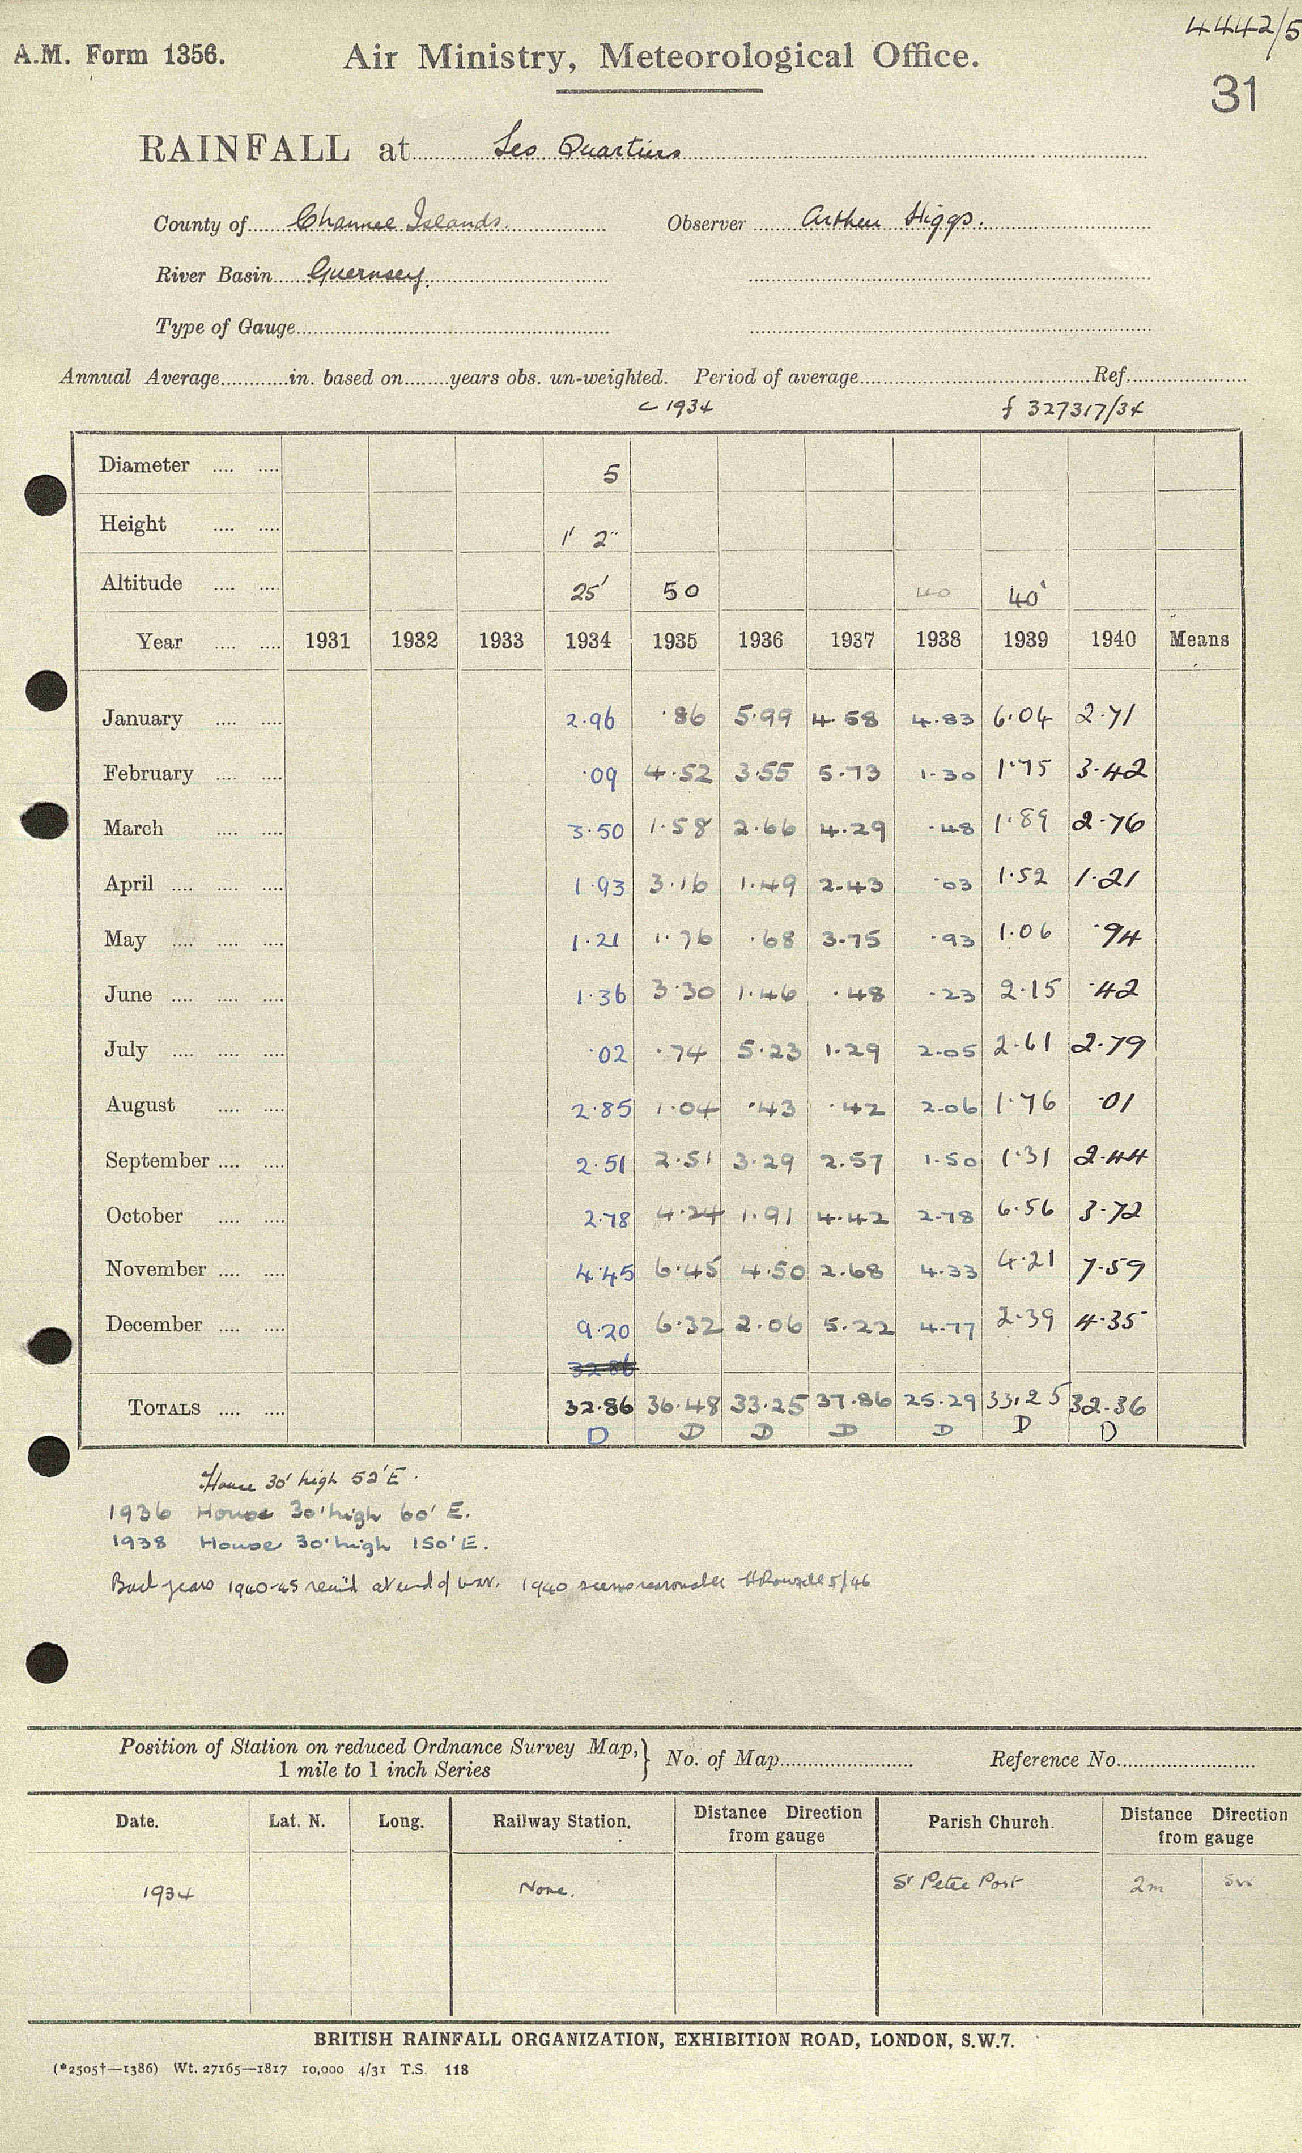 4442/5
A.M. Form 1356. Air Ministry, Meteorological Office.
31
RAINFALL at Les Quartiers
County of Channel Islands. Observer Arthur Higgs.
River Basin Guernsey.
Type of Gauge
Annual Average in. based on years obs. un-weighted. Period of average Ref.
c 1934 f 327317/34
Diameter 5
Height 1' 2"
Altitude 25' 50 40 40'
Year 1931 1932 1933 1934 1935 1936 1937 1938 1939 1940 Means
January 2.96 .86 5.99 4.58 4.83 6.04 2.71
February .09 4.52 3.55 5.73 1.30 1.75 3.42
March 3.50 1.58 2.66 4.29 .48 1.89 2.76
April 1.93 3.16 1.49 2.43 .03 1.52 1.21
May 1.21 1.76 .68 3.75 .93 1.06 .94
June 1.36 3.30 1.46 .48 .23 2.15 .42
July .02 .74 5.23 1.29 2.05 2.61 2.79
August 2.85 1.04 .43 .42 2.06 1.76 .01
September 2.51 2.51 3.29 2.57 1.50 1.31 2.44
October 2.78 4.24 1.91 4.42 2.78 6.56 3.72
November 4.45 6.45 4.50 2.68 4.33 4.21 7.59
December 9.20 6.32 2.06 5.22 4.77 2.39 4.35
32.86
TOTALS 32.86 36.48 33.25 37.86 25.29 33.25 32.36
D D D D D D D
House 30' high 52' E.
1936 House 30' high 60' E.
1938 House 30' high 150' E.
Back years 1940-45 rec'd at end of war. 1940 seems reasonable 5/46
Position of Station on reduced Ordnance Survey Map, 1 mile to 1 inch Series } No. of Map Reference No.
Date. Lat. N. Long. Railway Station. Distance Direction from gauge Parish Church. Distance Direction from gauge
1934 None. St Peter Port 2m SW
BRITISH RAINFALL ORGANIZATION, EXHIBITION ROAD, LONDON, S.W.7.
(*2505†—1386) Wt. 27165—1817 10,000 4/31 T.S. 118